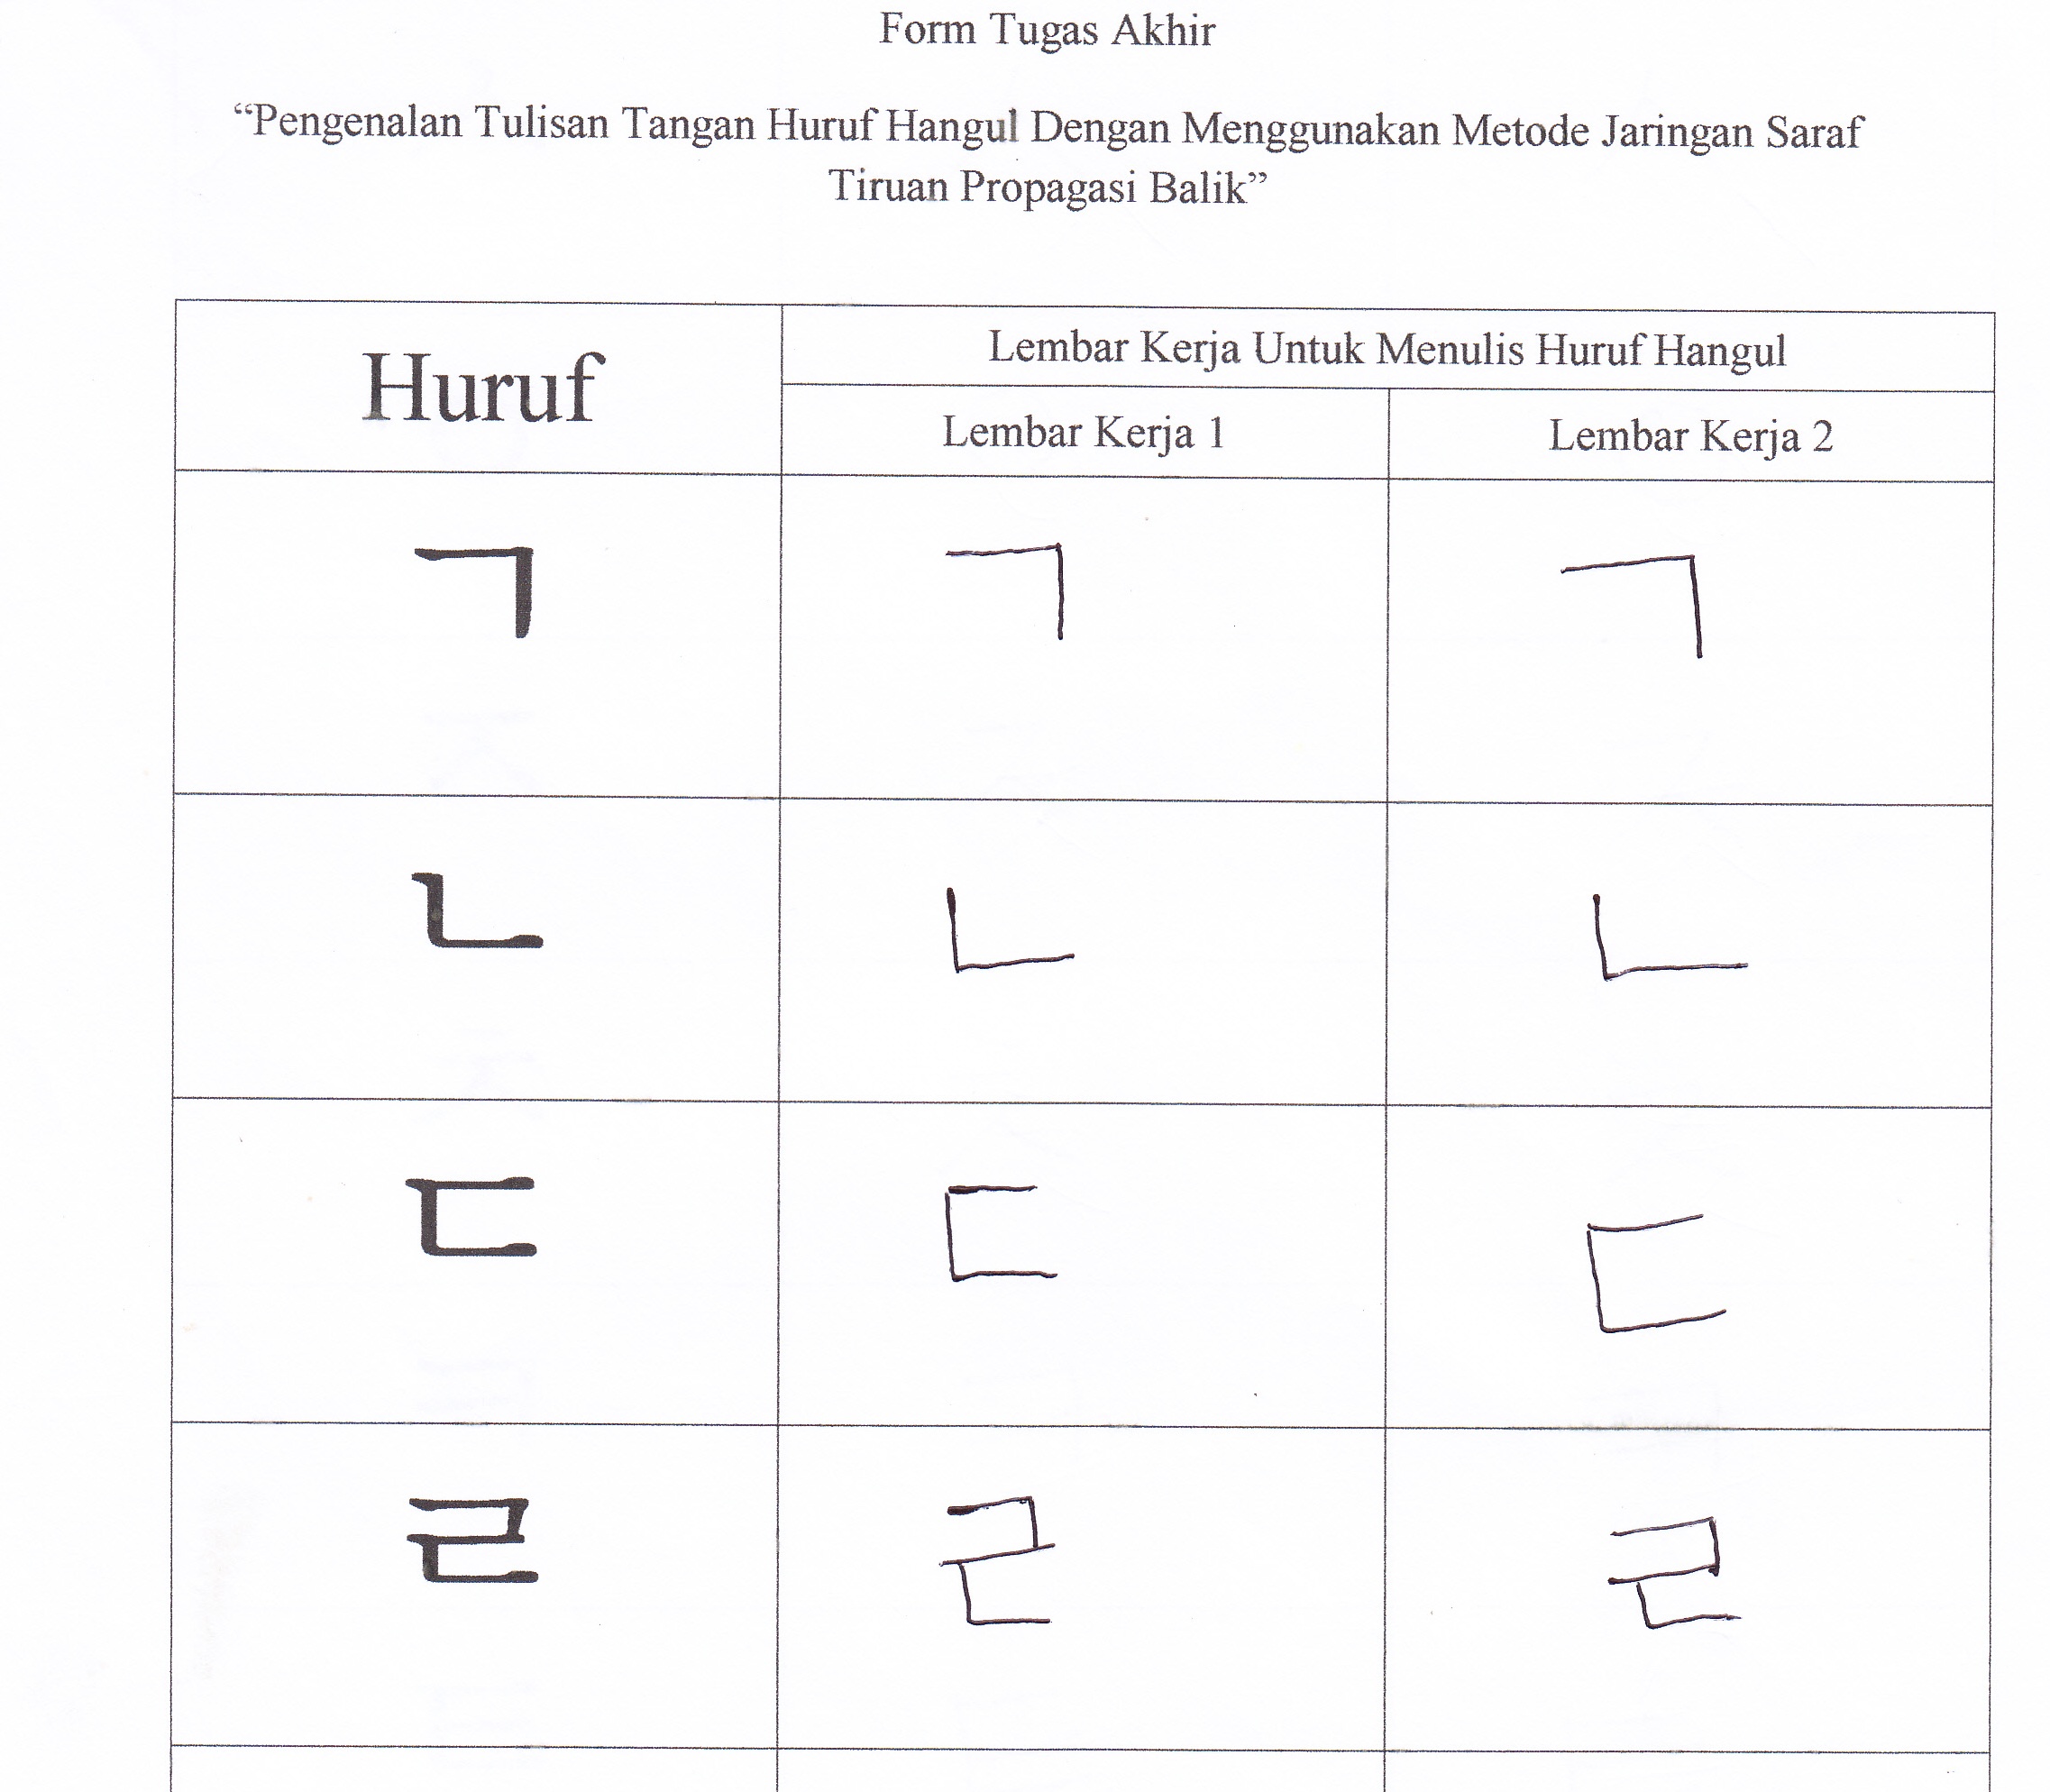 Form Tugas Akhir
“Pengenalan Tulisan Tangan Huruf Hangul Dengan Menggunakan Metode Jaringan Saraf
Tiruan Propagasi Balik”
Huruf
Lembar Kerja Untuk Menulis Huruf Hangul
Lembar Kerja 1 Lembar Kerja 2
ㄱ ㄱ ㄱ
ㄴ ㄴ ㄴ
ㄷ ㄷ ㄷ
ㄹ ㄹ ㄹ